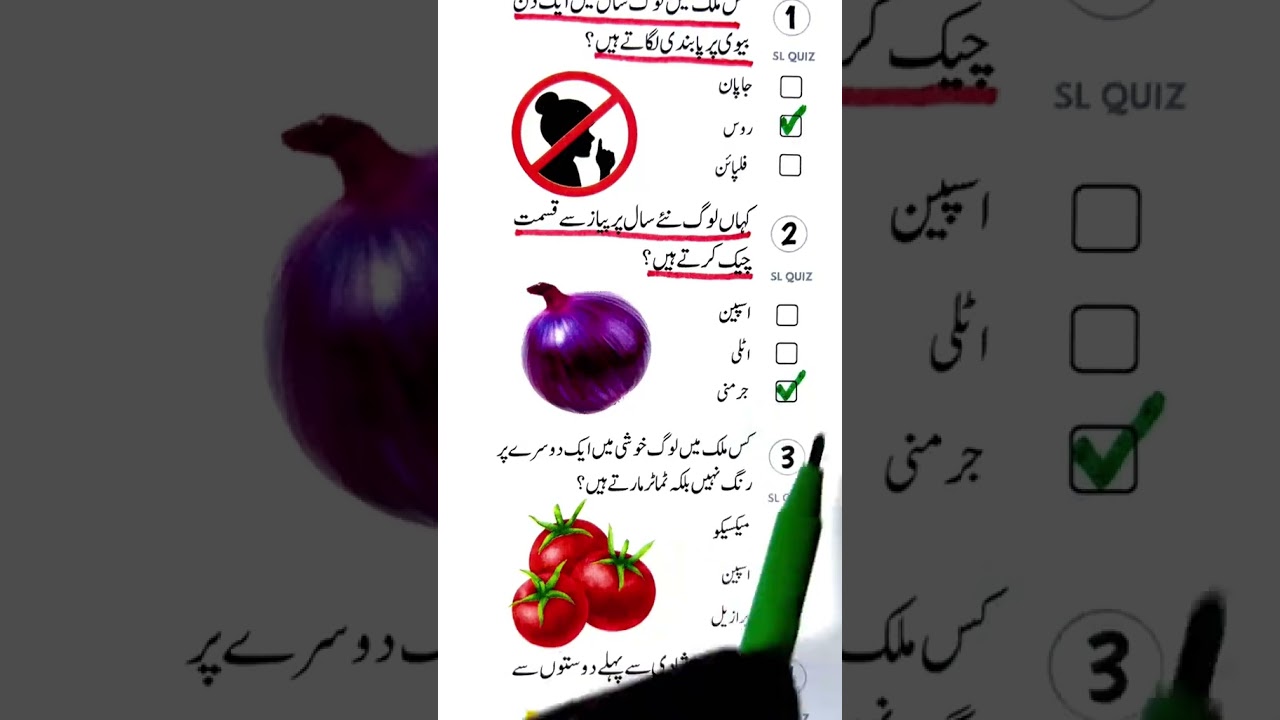 کس ملک میں لوگ سال میں ایک دن
بیوی پر پابندی لگاتے ہیں؟
1
SL QUIZ
جاپان
روس
فلپائن
کہاں لوگ نئے سال پر پیاز سے قسمت
چیک کرتے ہیں؟
2
SL QUIZ
اسپین
اٹلی
جرمنی
کس ملک میں لوگ خوشی میں ایک دوسرے پر
رنگ نہیں بلکہ ٹماٹر مارتے ہیں؟
3
SL
میکسیکو
اسپین
برازیل
شادی سے پہلے دوستوں سے
چیک کر
SL QUIZ
اسپین
اٹلی
جرمنی
کس ملک
دوسرے پر
3